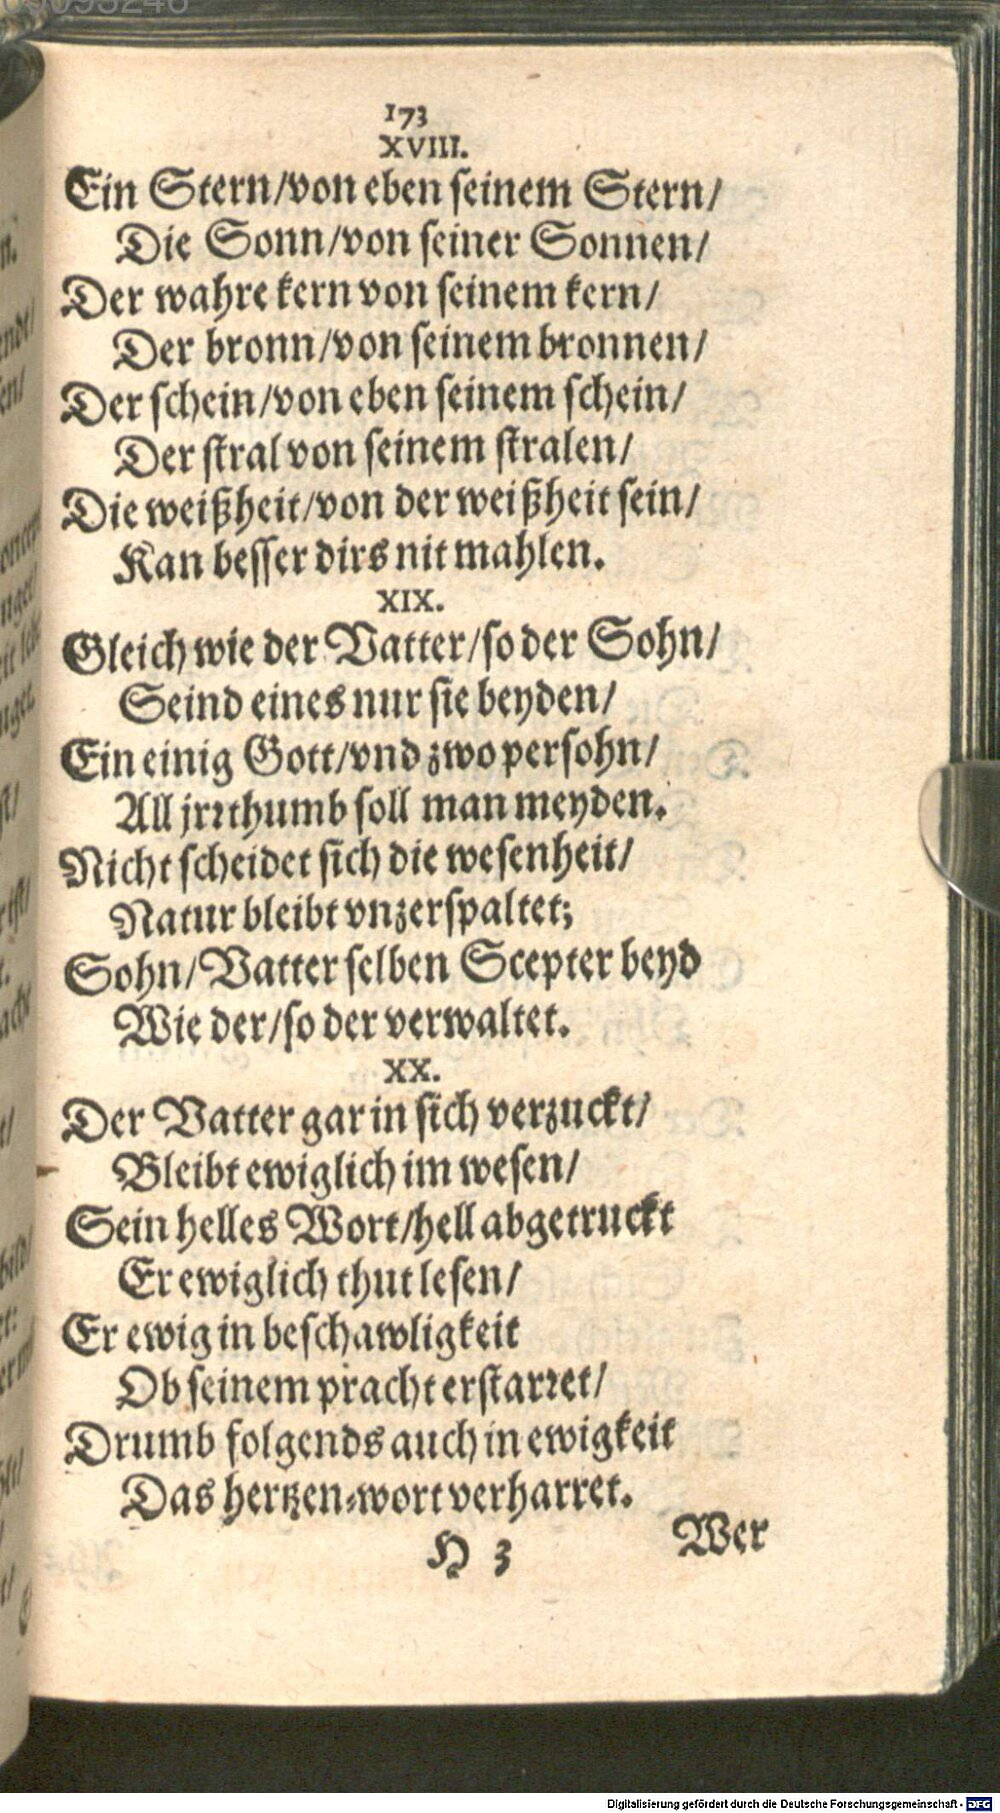 173
XVIII.
Ein Stern/von eben seinem Stern/
Die Sonn/von seiner Sonnen/
Der wahre kern von seinem kern/
Der bronn/von seinem bronnen/
Der schein/von eben seinem schein/
Der stral von seinem stralen/
Die weißheit/von der weißheit sein/
Kan besser dirs nit mahlen.
XIX.
Gleich wie der Vatter/so der Sohn/
Seind eines nur sie beyden/
Ein einig Gott/vnd zwo persohn/
All jrrthumb soll man meyden.
Nicht scheidet sich die wesenheit/
Natur bleibt vnzerspaltet;
Sohn/Vatter selben Scepter beyd
Wie der/so der verwaltet.
XX.
Der Vatter gar in sich verzuckt/
Bleibt ewiglich im wesen/
Sein helles Wort/hell abgetruckt
Er ewiglich thut lesen/
Er ewig in beschawligkeit
Ob seinem pracht erstarret/
Drumb folgends auch in ewigkeit
Das hertzen-wort verharret.
H 3
Wer
Digitalisierung gefördert durch die Deutsche Forschungsgemeinschaft - DFG